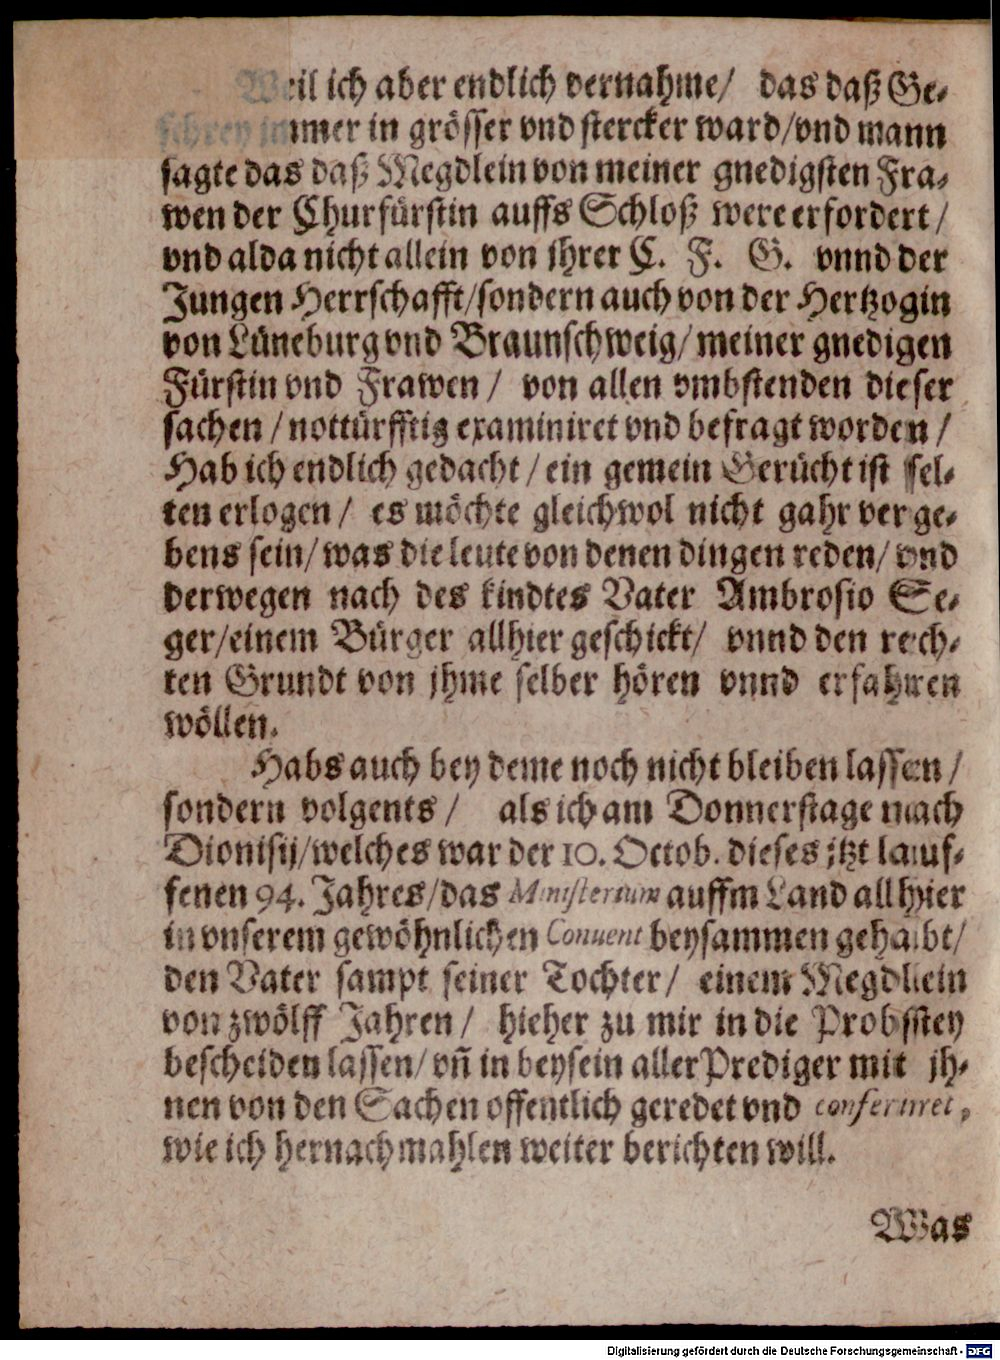 Weil ich aber endlich vernahme/ das daß Ge-
schrey immer in grösser vnd stercker ward/vnd mann
sagte das daß Megdlein von meiner gnedigsten Fra-
wen der Churfürstin auffs Schloß were erfordert/
vnd alda nicht allein von jhrer C. F. G. vnnd der
Jungen Herrschafft/sondern auch von der Hertzogin
von Lüneburg vnd Braunschweig/meiner gnedigen
Fürstin vnd Frawen/ von allen vmbstenden dieser
sachen/nottürfftig examiniret vnd befragt worden/
Hab ich endlich gedacht/ein gemein Gerücht ist sel-
ten erlogen/ es möchte gleichwol nicht gahr verge-
bens sein/was die leute von denen dingen reden/vnd
derwegen nach des kindtes Vater Ambrosio Se-
ger/einem Bürger allhier geschickt/ vnnd den rech-
ten Grundt von jhme selber hören vnnd erfahren
wöllen.
Habs auch bey deme noch nicht bleiben lassen/
sondern volgents/ als ich am Donnerstage nach
Dionisij/welches war der 10. Octob. dieses jtzt lauf-
fenen 94. Jahres/das Ministerium auffm Land allhier
in vnserem gewöhnlichen Conuent beysammen gehabt/
den Vater sampt seiner Tochter/ einem Megdlein
von zwölff Jahren/ hieher zu mir in die Probstey
bescheiden lassen/vn̄ in beysein aller Prediger mit jh-
nen von den Sachen offentlich geredet vnd conferiret,
wie ich hernachmahlen weiter berichten will.
Was
Digitalisierung gefördert durch die Deutsche Forschungsgemeinschaft - DFG